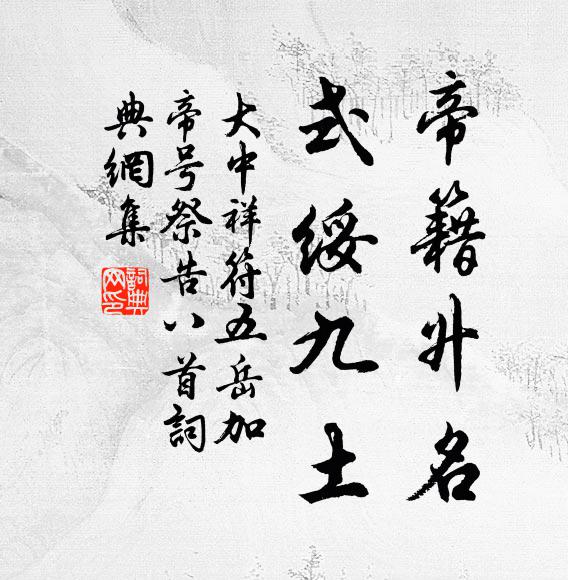 帝籍升名
式綏九土
大中祥符五岳加
帝号祭告八首詞
典網集
詞典网印